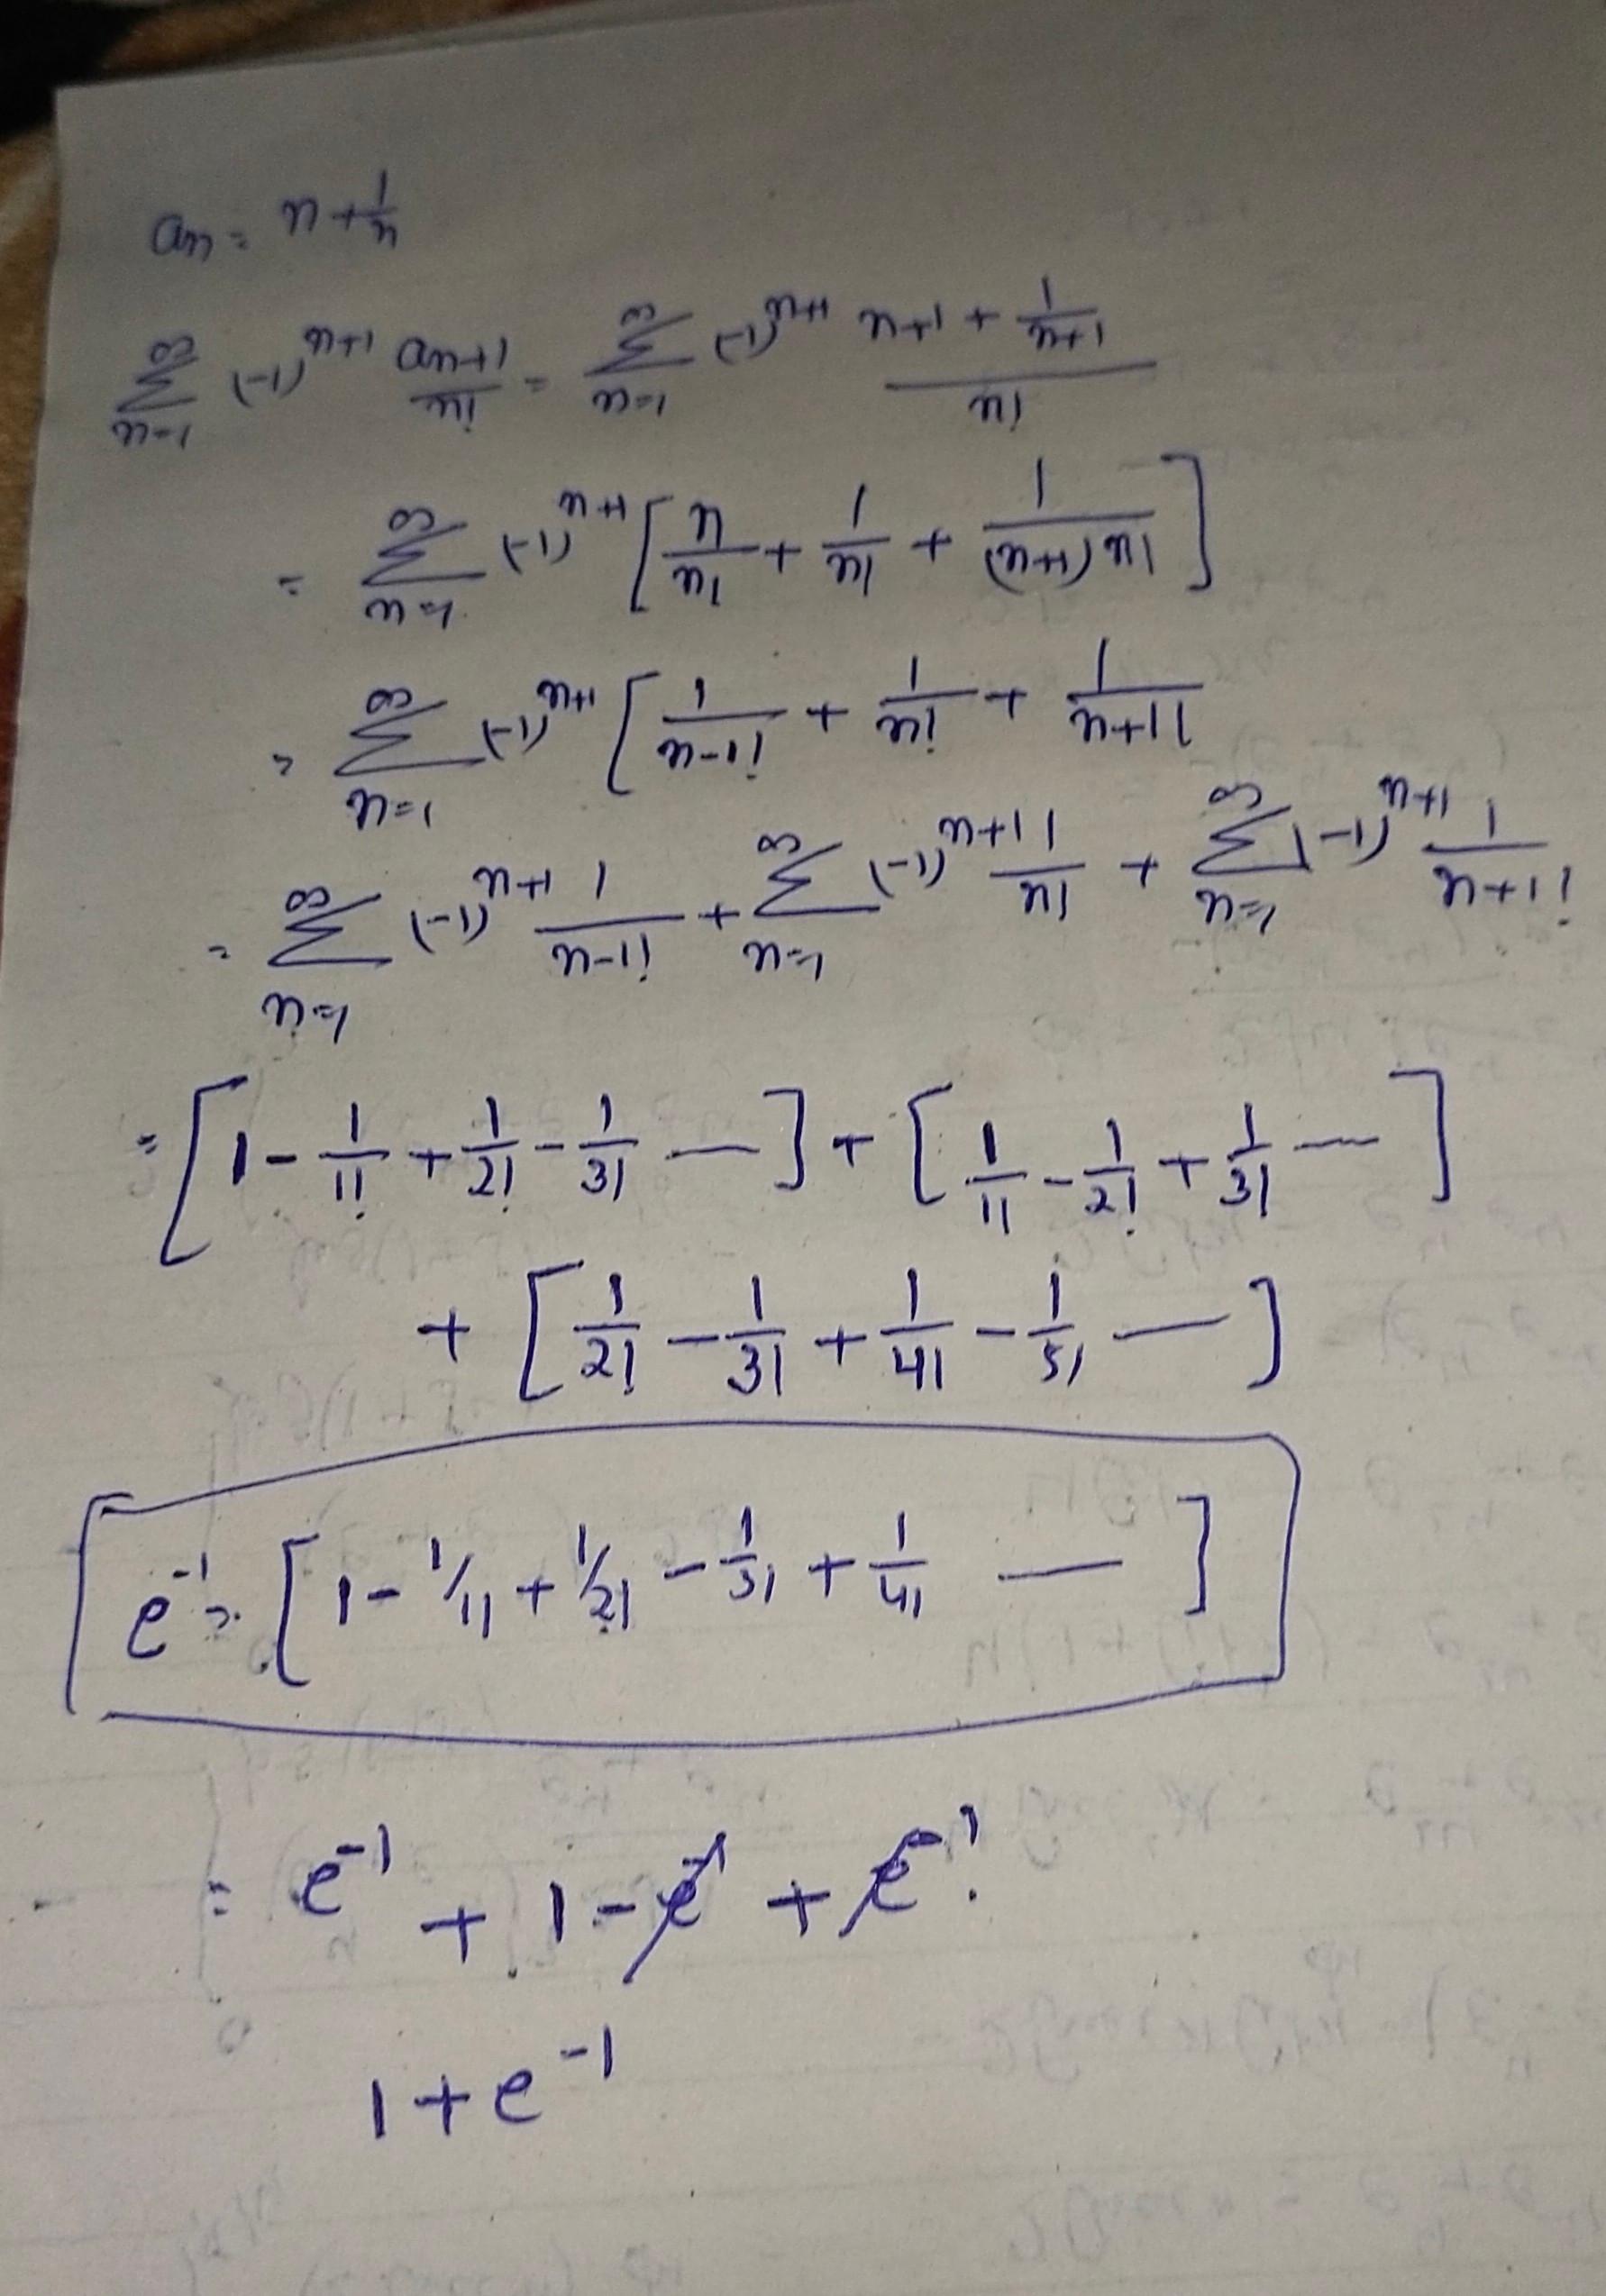 an = n + 1/n
∞ Σ n=1 (-1)^n+1 an+1/n! = ∞ Σ n=1 (-1)^n+1 n+1 + 1/n+1 / n!
= ∞ Σ n=1 (-1)^n+1 [ n/n! + 1/n! + 1/(n+1) n! ]
= ∞ Σ n=1 (-1)^n+1 [ 1/n-1! + 1/n! + 1/n+1!
= ∞ Σ n=1 (-1)^n+1 1/n-1! + ∞ Σ n=1 (-1)^n+1 1/n! + ∞ Σ n=1 (-1)^n+1 1/n+1!
= [ 1 - 1/1! + 1/2! - 1/3! — ] + [ 1/1! - 1/2! + 1/3! — ]
+ [ 1/2! - 1/3! + 1/4! - 1/5! — ]
e^-1 = [ 1 - 1/1! + 1/2! - 1/3! + 1/4! — ]
= e^-1 + 1 - e^-1 + e^-1
1 + e^-1